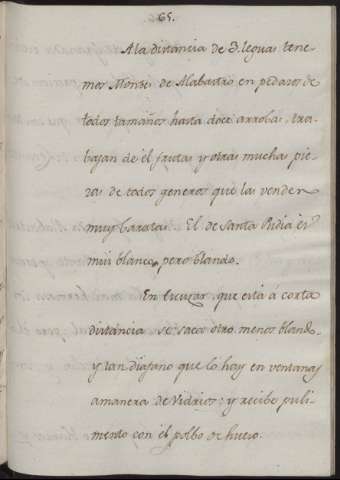 65.
A la distancia de 3. leguas tene-
mos Montes de Alabastro en pedazos de
todos tamaños hasta doce arrobas, tra-
bajan de él jautas y otras muchas pie-
zas de todos generos que las venden
muy baratas. El de Santa Pudia es
mui blanco, pero blando.
En Escuzar que está á corta
distancia se saca otro menos blando,
y tan diafano que lo hay en ventanas
amanera de Vidrios; y recibe puli-
mento con el polbo de hueso.